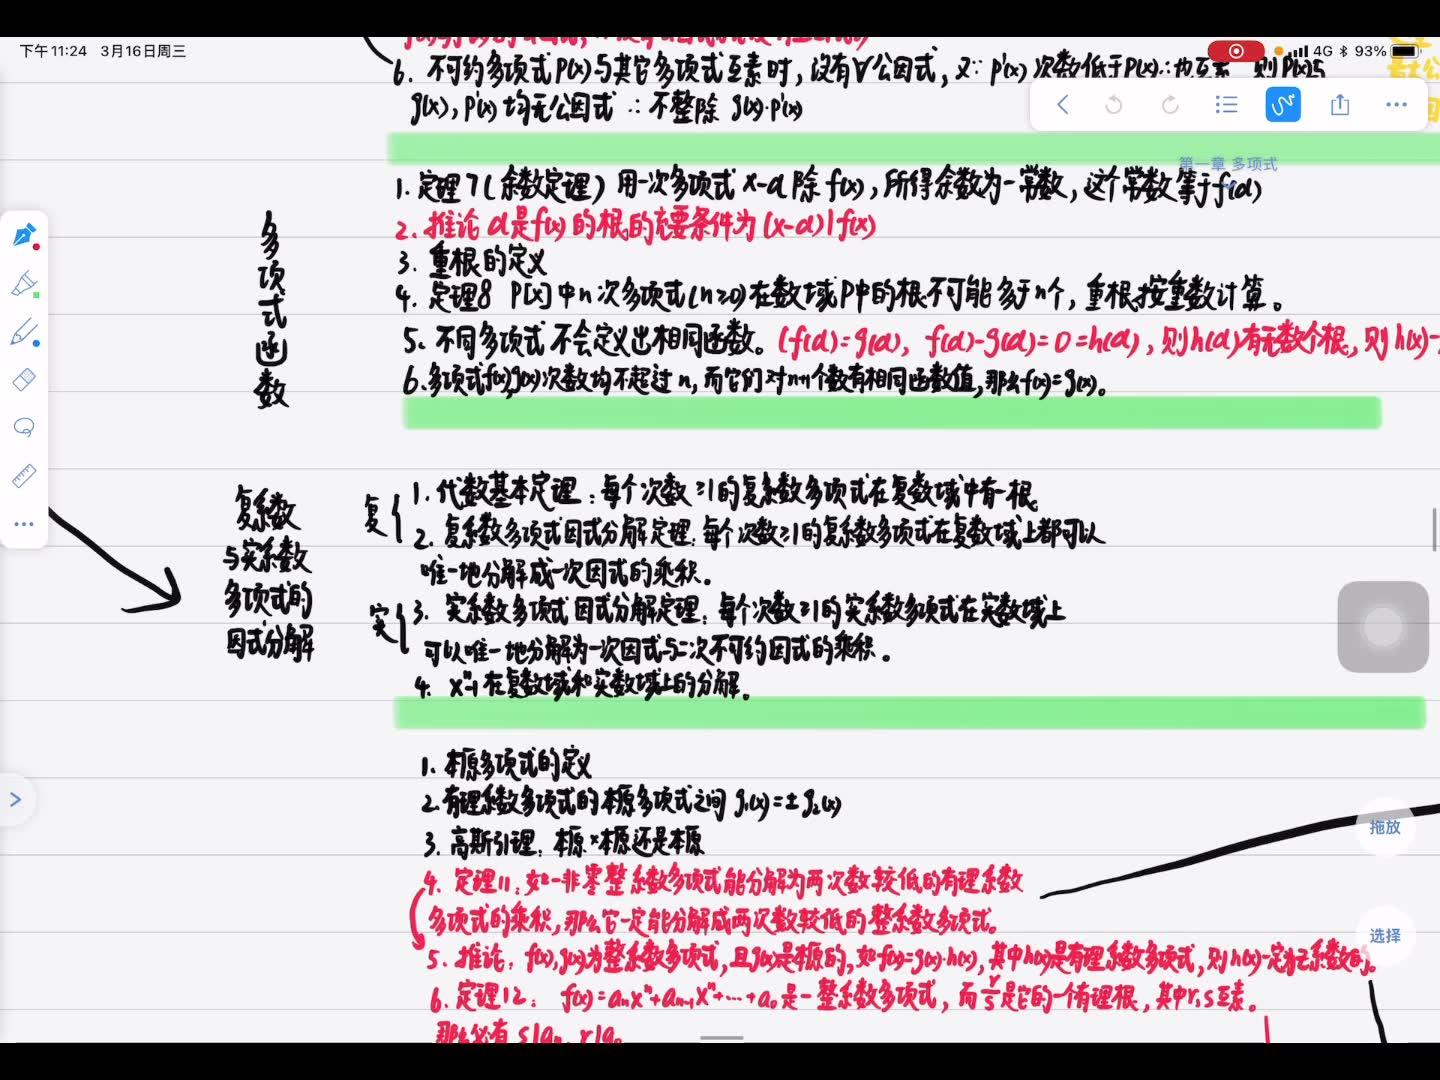 下午11:24 3月16日周三
4G 93%
6. 不可约多项式P(x)与其它多项式互素时,没有∀公因式,又∵ p'(x)次数低于P(x)∴也互素 则P(x)与
g(x), p'(x)均无公因式 ∴不整除 g(x)·p'(x)
第一章 多项式
1. 定理7(余数定理) 用一次多项式 x-α 除 f(x),所得余数为一常数,这个常数等于f(α)
2. 推论 α是f(x)的根的充要条件为 (x-α)|f(x)
3. 重根的定义
4. 定理8 P[x]中n次多项式(n≥0)在数域P中的根不可能多于n个,重根按重数计算。
5. 不同多项式不会定义出相同函数。(f(α)=g(α), f(α)-g(α)=0=h(α),则h(α)有无数个根,则h(x)=
6. 多项式f(x),g(x)次数均不超过n,而它们对n+1个数有相同函数值,那么f(x)=g(x)。
多项式函数
复系数
与实系数
多项式的
因式分解
复
1. 代数基本定理:每个次数≥1的复系数多项式在复数域中有一根。
2. 复系数多项式因式分解定理:每个次数≥1的复系数多项式在复数域上都可以
唯一地分解成一次因式的乘积。
实
3. 实系数多项式因式分解定理:每个次数≥1的实系数多项式在实数域上
可以唯一地分解为一次因式与二次不可约因式的乘积。
4. xⁿ-1在复数域和实数域上的分解。
1. 本原多项式的定义
2. 有理系数多项式的本原多项式之间 g₁(x)=±g₂(x)
3. 高斯引理:本原×本原还是本原
4. 定理11:如一非零整系数多项式能分解为两次数较低的有理系数
多项式的乘积,那么它一定能分解成两次数较低的整系数多项式。
5. 推论:f(x),g(x)为整系数多项式,且g(x)是本原的,如f(x)=g(x)·h(x),其中h(x)是有理系数多项式,则h(x)一定为Z系数的。
6. 定理12: f(x)=aₙxⁿ+aₙ₋₁xⁿ⁻¹+…+a₀是一整系数多项式,而r/s是它的一个有理根,其中r,s互素。
那么必有 s|aₙ, r|a₀
拖放
选择